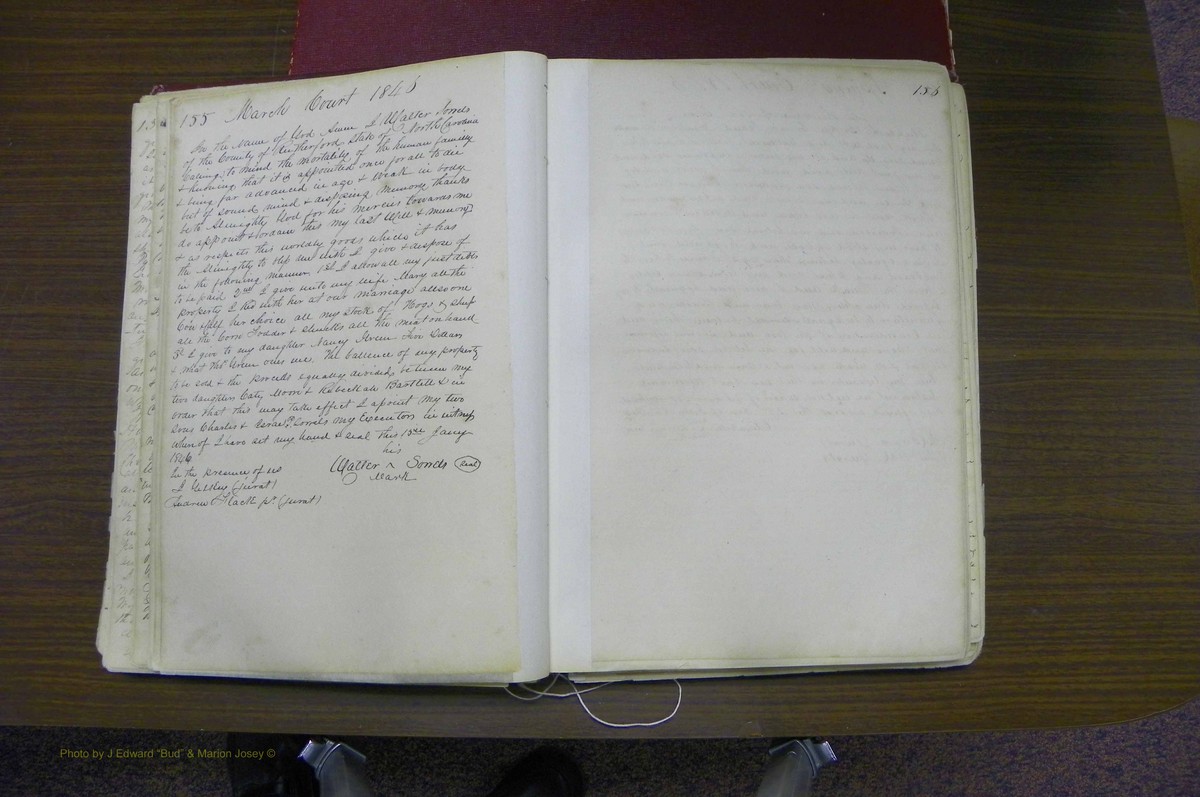 155 March Court 1846
In the Name of God Amen I Walter Sorrels
of the County of Rutherford State of North Carolina
Calling to mind the mortality of the human family
& knowing that it is appointed once for all to die
& being far advanced in age & weak in body
but of sound mind & disposing memory thanks
be to Almighty God for his mercies towards me
do appoint & ordain this my last Will &
& as respects this worldly goods which it has
the Almighty to me with I give & dispose of
in the following manner 1st I allow all my just debts
to be paid 2nd I give unto my wife Mary all the
property I had with her at our marriage also one
Cow & Calf her choice all my stock of Hogs & sheep
all the Corn Fodder & shucks all the meat on hand
3d I give to my daughter Nancy Green Five Dollars
& what Green owes me. The ballence of my property
to be sold & the proceeds equally divided between my
two daughters Caty Moore & Rebeckah Bartlett & in
order that this may take effect I apoint my two
sons Charles & Sorrels my Executors in witness
whereof I have set my hand & seal this 13th Jany
1846
his
Walter Sorrels (seal)
Mark
In the presence of us
(Jurat)
(Jurat)
156
Photo by J Edward "Bud" & Marion Josey ©